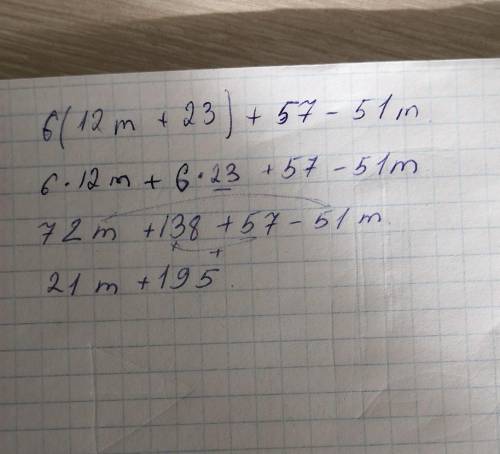 6(12m + 23) + 57 - 51m
6·12m + 6·23 + 57 - 51m
72m + 138 + 57 - 51m
21m + 195